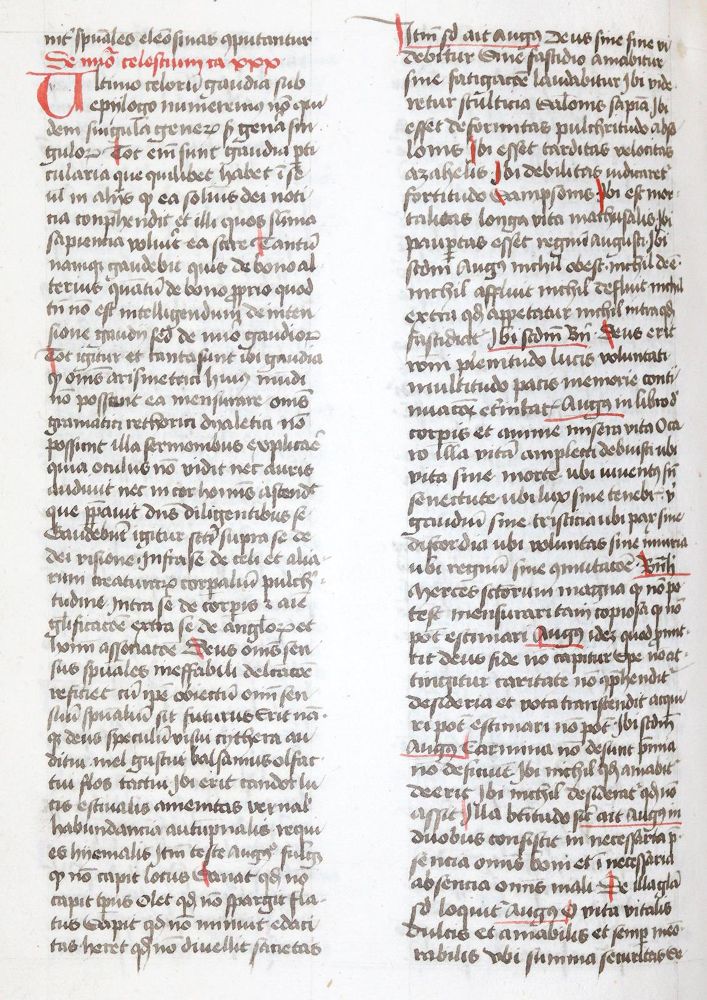 int͛ spūales eleōsinas ɔputantur
De nūo celestium ca xxx
Ultimo celorū gaudia sub
epilogo numeremus nō qui
dem singula generꝝ s genā sin
gulorꝝ Tot em̄ sunt gaudia p̄ti
cularia que quilibet habet ī se
ul in alijs ꝙ ea solius dei noti
cia conphendit et illi quos sūma
sapiencia voluit ea scire Tantū
namqꝫ gaudebit quis de bono al
terius quātū de bono ꝓprio quod
tn̄ nō est intelligendum de inten
sione gaudij sed de nūo gaudiorꝝ
Tot igitur et tanta sunt ibi gaudia
ꝙ om̄s arismetrici huius mūdi
nō possunt ea mensurare om̄s
gramatici rethorici dyaletici nō
possunt illa sermonibus explicare
quia oculus nō vidit nec auris
audiuit nec in cor hominis ascendit
que p̄pauit dn̄s diligentibus se
Gaudebunt igitur scī supra se de
dei visione Infra se de celi et alia
rum creaturarꝝ corpalium pulch͛
tudine Intra se de corpis ⁊ aīe
gl̄ificacōe extra se de anglorꝝ et
hoīm associacōe Deus om̄s sen
sus spūales ineffabili delcacōe
reficiet cū ip̄e obiectū om̄ sen
suū spūaliū sit futurus Erit nā
qꝫ deus speculū visui cythera au
ditui mel gustui balsamus olfac
tui flos tactui Ibi erit candor lu
cis estiualis amenitas vernal͛
habundancia autūpnalis requi
es hiemalis Itm̄ teste Augꝰ fulgꝫ
ꝙ nō capit locus Sonat qd̄ nō
capit tp̄us Olet qd̄ nō spargit fla
tus Sapit qd̄ nō minuit edaci
tas heret qd̄ nō diuellit sacietas
Itm̄ sd̄ ait Augꝰ Deus sine fine vi
debitur Sine fastidio amabitur
sine fatigacōe laudabitur Ibi vide
retur stulticia Salomis sapīa Ibi
esset deformitas pulchritudo abso
lonis Ibi esset tarditas velocitas
azahelis Ibi debilitas iudicaret
fortitudo Sampsonis Ibi est mor
talitas longa vita mathusalis Ibi
paup̄tas esset regnū augusti Ibi
scdm̄ Augꝰ nichil obest nichil deē
nichil affluit nichil defluit nichil
extra qd̄ appetatur nichil intra qd̄
fastidiat Ibi scdm̄ Bn̄ Deus erit
rōni plenitudo lucis voluntati
multitudo pacis memorie conti
nuacō et͛nitat͛ Augꝰ in libro d͛
corpis et anime misera vita O ca
ro illa vitā amplecti debuisti ubi
vita sine morte ubi iuuentꝰ sn̄
senectute ubi lux sine tenebr͛ ꝟ
gaudiū sine tristicia ubi pax sine
discordia ubi voluntas sine iniuria
ubi regnum sine ɔmutacōe Bnh̄
Merces sctorum magna ꝙ nō po
test mensurari tam copiosa ꝙ nō
pōt estimari Augꝰ idez quod p̄mit
tit deus fide nō capitur Spe nō at
tingitur caritate nō apphendit͛
desideria et vota transcendit acqui
ri pōt estimari nō pōt Ibi scdm̄
Augꝰ Carmina nō desunt p̄mia
nō deficiūt Ibi nichil qd̄ amabit͛
deerit Ibi nichil desiderat͛ qd̄ nō
assit Illa btītudo sic͛ ait Augꝰ in
duobus consistit in necessaria p̄
sencia omīs boni et ī necessaria
absencia omīs mali De illa glā
sd̄ loquit͛ Augꝰ O vita vitalis
dulcis et amabilis et semp̄ me͞o
rabilis vbi summa securitas Se